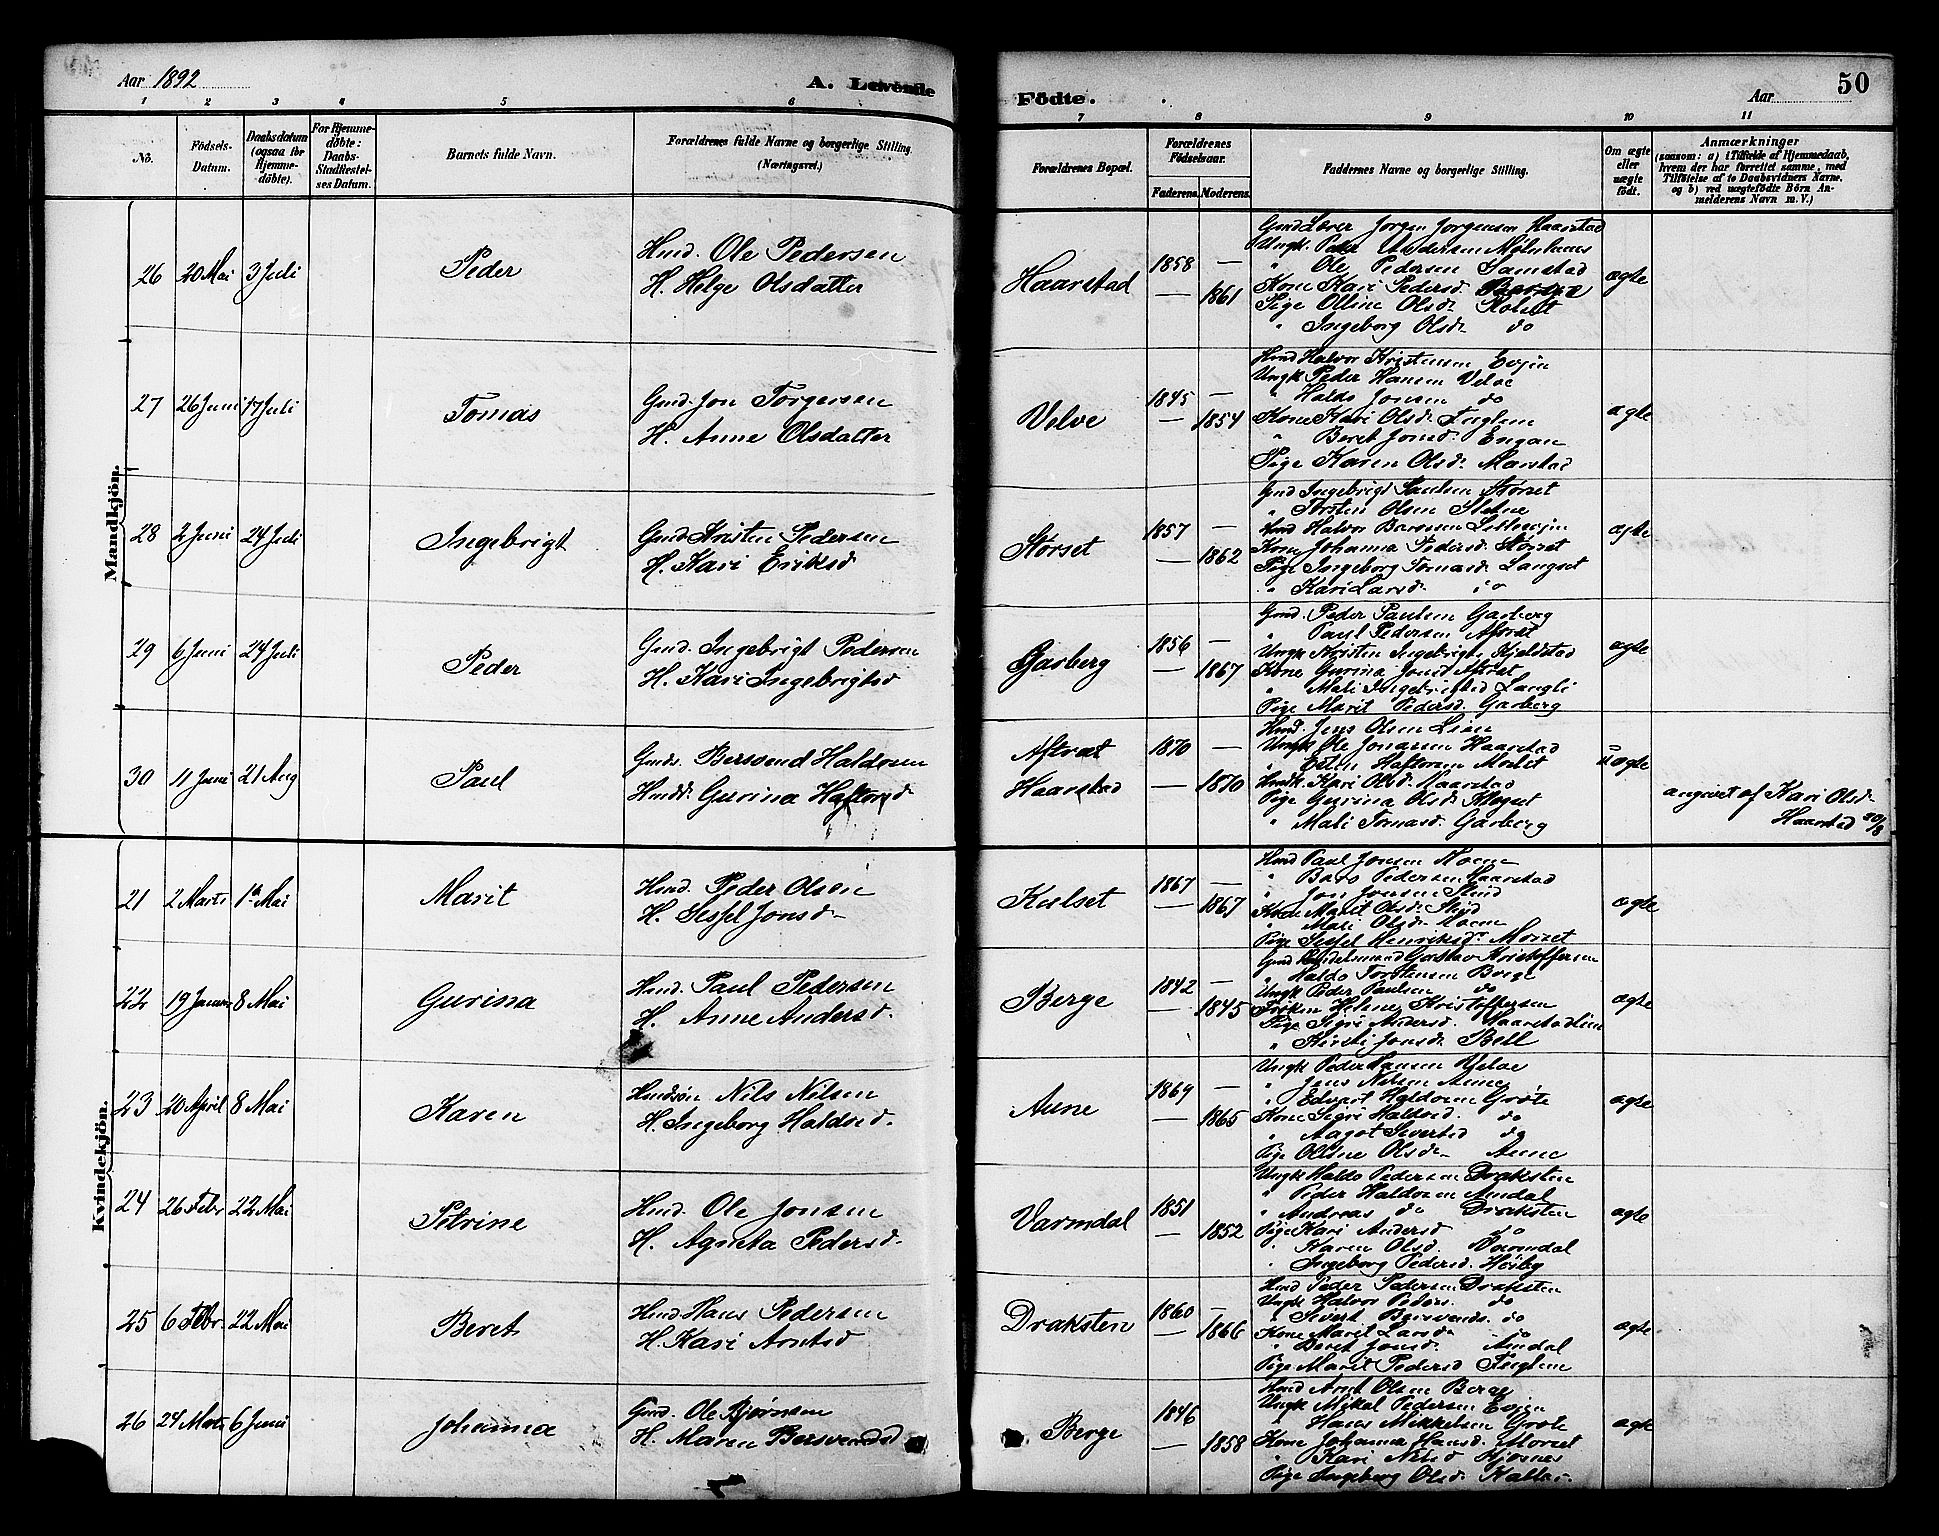 Aar 1892
A. Levende
Födte.
Aar
50
1 2 3 4 5 6 7 8 9 10 11
No.
Födsels-Datum.
Daabsdatum (ogsaa for Hjemme-döbte).
For Hjemme-döbte: Daabs-Stadfæstel-ses Datum.
Barnets fulde Navn.
Forældrenes fulde Navne og borgerlige Stilling (Næringsvei.)
Forældrenes Bopæl.
Forældrenes Födselsaar.
Faderens. Moderens.
Faddernes Navne og borgerlige Stilling.
Om ægte eller uægte födt.
Anmærkninger
(saasom: a) i Tilfælde af Hjemmedaab, hvem der har forrettet samme, med Tilföielse af to Daabsvidners Navne. og b) ved uægtefödte Börn Anmelderens Navn m. V.)
Mandkjön.
26 20 Mai 3 Juli Peder
Hmd. Ole Pedersen
H. Helge Olsdatter
Haarstad 1858 — — 1861
Gmd Lærer Jorgen Jorgensen Haarstad
Ungk. Peder
" Ole Pedersen Samstad
Kone Kari Pedersd.
Pige Olline Olsd. Kolset
" Ingeborg Olsd. do
ægte
27 26 Juni 17 Juli Tomas
Gmd. Jon Torgersen
H. Anne Olsdatter
Velve 1845 — — 1854
Hmd Halvor Kristensen Evjen
Ungk Peder Hansen Velve
" Haldo Jonsen do
Kone Kari Olsd. Fuglem
" Beret Jonsd. Engan
Pige Karen Olsd. Marstad
ægte
28 2 Juni 24 Juli Ingebrigt
Gmd Kristen Pedersen
H. Kari Eriksd
Størset 1857 — — 1862
Gmd Ingebrigt Paulsen Størset
" Torsten Olsen Slehne
Hmd Halvor Baroesen Lilleevjen
Kone Johanna Pedersd. Størset
Pige Ingeborg Tomasd. Langset
" Kari Larsd. do
ægte
29 6 Juni 24 Juli Peder
Gmd. Ingebrigt Pedersen
H. Kari Ingebrigtsd
Garberg 1856 — — 1867
Gmd. Peder Paulsen Garberg
" Paul Pedersen Aftret
Ungk Kristen Ingebrigts. Kjeldstad
Kone Gurina Jonsd Aftret
" Mali Ingebrigtsd Langli
Pige Marit Pedersd. Garberg
ægte
30 11 Juni 21 Aug Paul
Gmds. Bersvend Haldosen
Hmdd. Gurina Haftorsd
Aftræt 1870 —
Haarstad — 1870
Hmd. Jens Olsen Lien
Ungk Ole Jonasen Haarstad
" Esten Haftorsen Morset
Hmdk. Kari Olsd. Haarstad
Pige Gurina Olsd. Kleset
" Mali Tomasd. Garberg
uægte
angivet af Kari Olsd-
Haarstad 20/8
Kvindekjön.
21 2 Marts 1ste Mai Marit
Hmd. Peder Olsen
H. Sessel Jonsd-
Kulset 1867 — — 1867
Hmd Paul Jonsen Moen
" Baro Pedersen Haarstad
" Jon Jonsen Slind
Kone Marit Olsd. Slind
" Mali Olsd. Moen
Pige Sessel Henriksd. Morset
ægte
22 19 Januar 8 Mai Gurina
Hmd. Paul Pedersen
H. Anne Andersd.
Berge 1842 — — 1845
Gmd Gustav Kristoffersen
" Haldo Torstensen Berge
Ungk Peder Paulsen do
Frøken Helene Kristoffersen
Pige Sigri Andersd. Haarstadlien
" Kirsti Jonsd. Bell
ægte
23 20 April 8 Mai Karen
Hmdsøn Nils Nilsen
H. Ingeborg Haldosd.
Aune 1869 — — 1865
Ungk Peder Hansen Velve
" Jens Nilsen Aune
" Edvart Haldosen Grøte
Kone Sigri Haldosd. do
" Aagot Sivertsd do
Pige Olline Olsd- Aune
ægte
24 26 Febr 22 Mai Petrine
Hmd. Ole Jonsen
H. Agneta Pedersd.
Varmdal 1851 — — 1852
Ungk Haldo Pedersen Draksten
" Peder Haldosen Amdal
" Andreas do Draksten
Pige Kari Andersd do
" Karen Olsd. Varmdal
" Ingeborg Pedersd. Høiby
ægte
25 6 Febr. 22 Mai Beret
Hmd Hans Pedersen
H. Kari Arntsd
Draksten 1860 — — 1866
Hmd Peder Pedersen Draksten
Ungk Halvor Peders. do
" Sivert Bersvends. do
Kone Marit Larsd. do
" Beret Jonsd. Amdal
Pige Marit Pedersd Fuglem
ægte
26 24 Marts 6 Juni Johanna
Gmd. Ole Bjørnsen
H. Maren Bersvendsd
Berge 1846 — — 1858
Hmd Arnt Olsen Berge
Ungk Mikal Pedersen Evjen
" Hans Mikkelsen Grøte
Kone Johanna Hansd. Morset
" Kari Nilsd Kjøsnes
Pige Ingeborg Olsd.
ægte